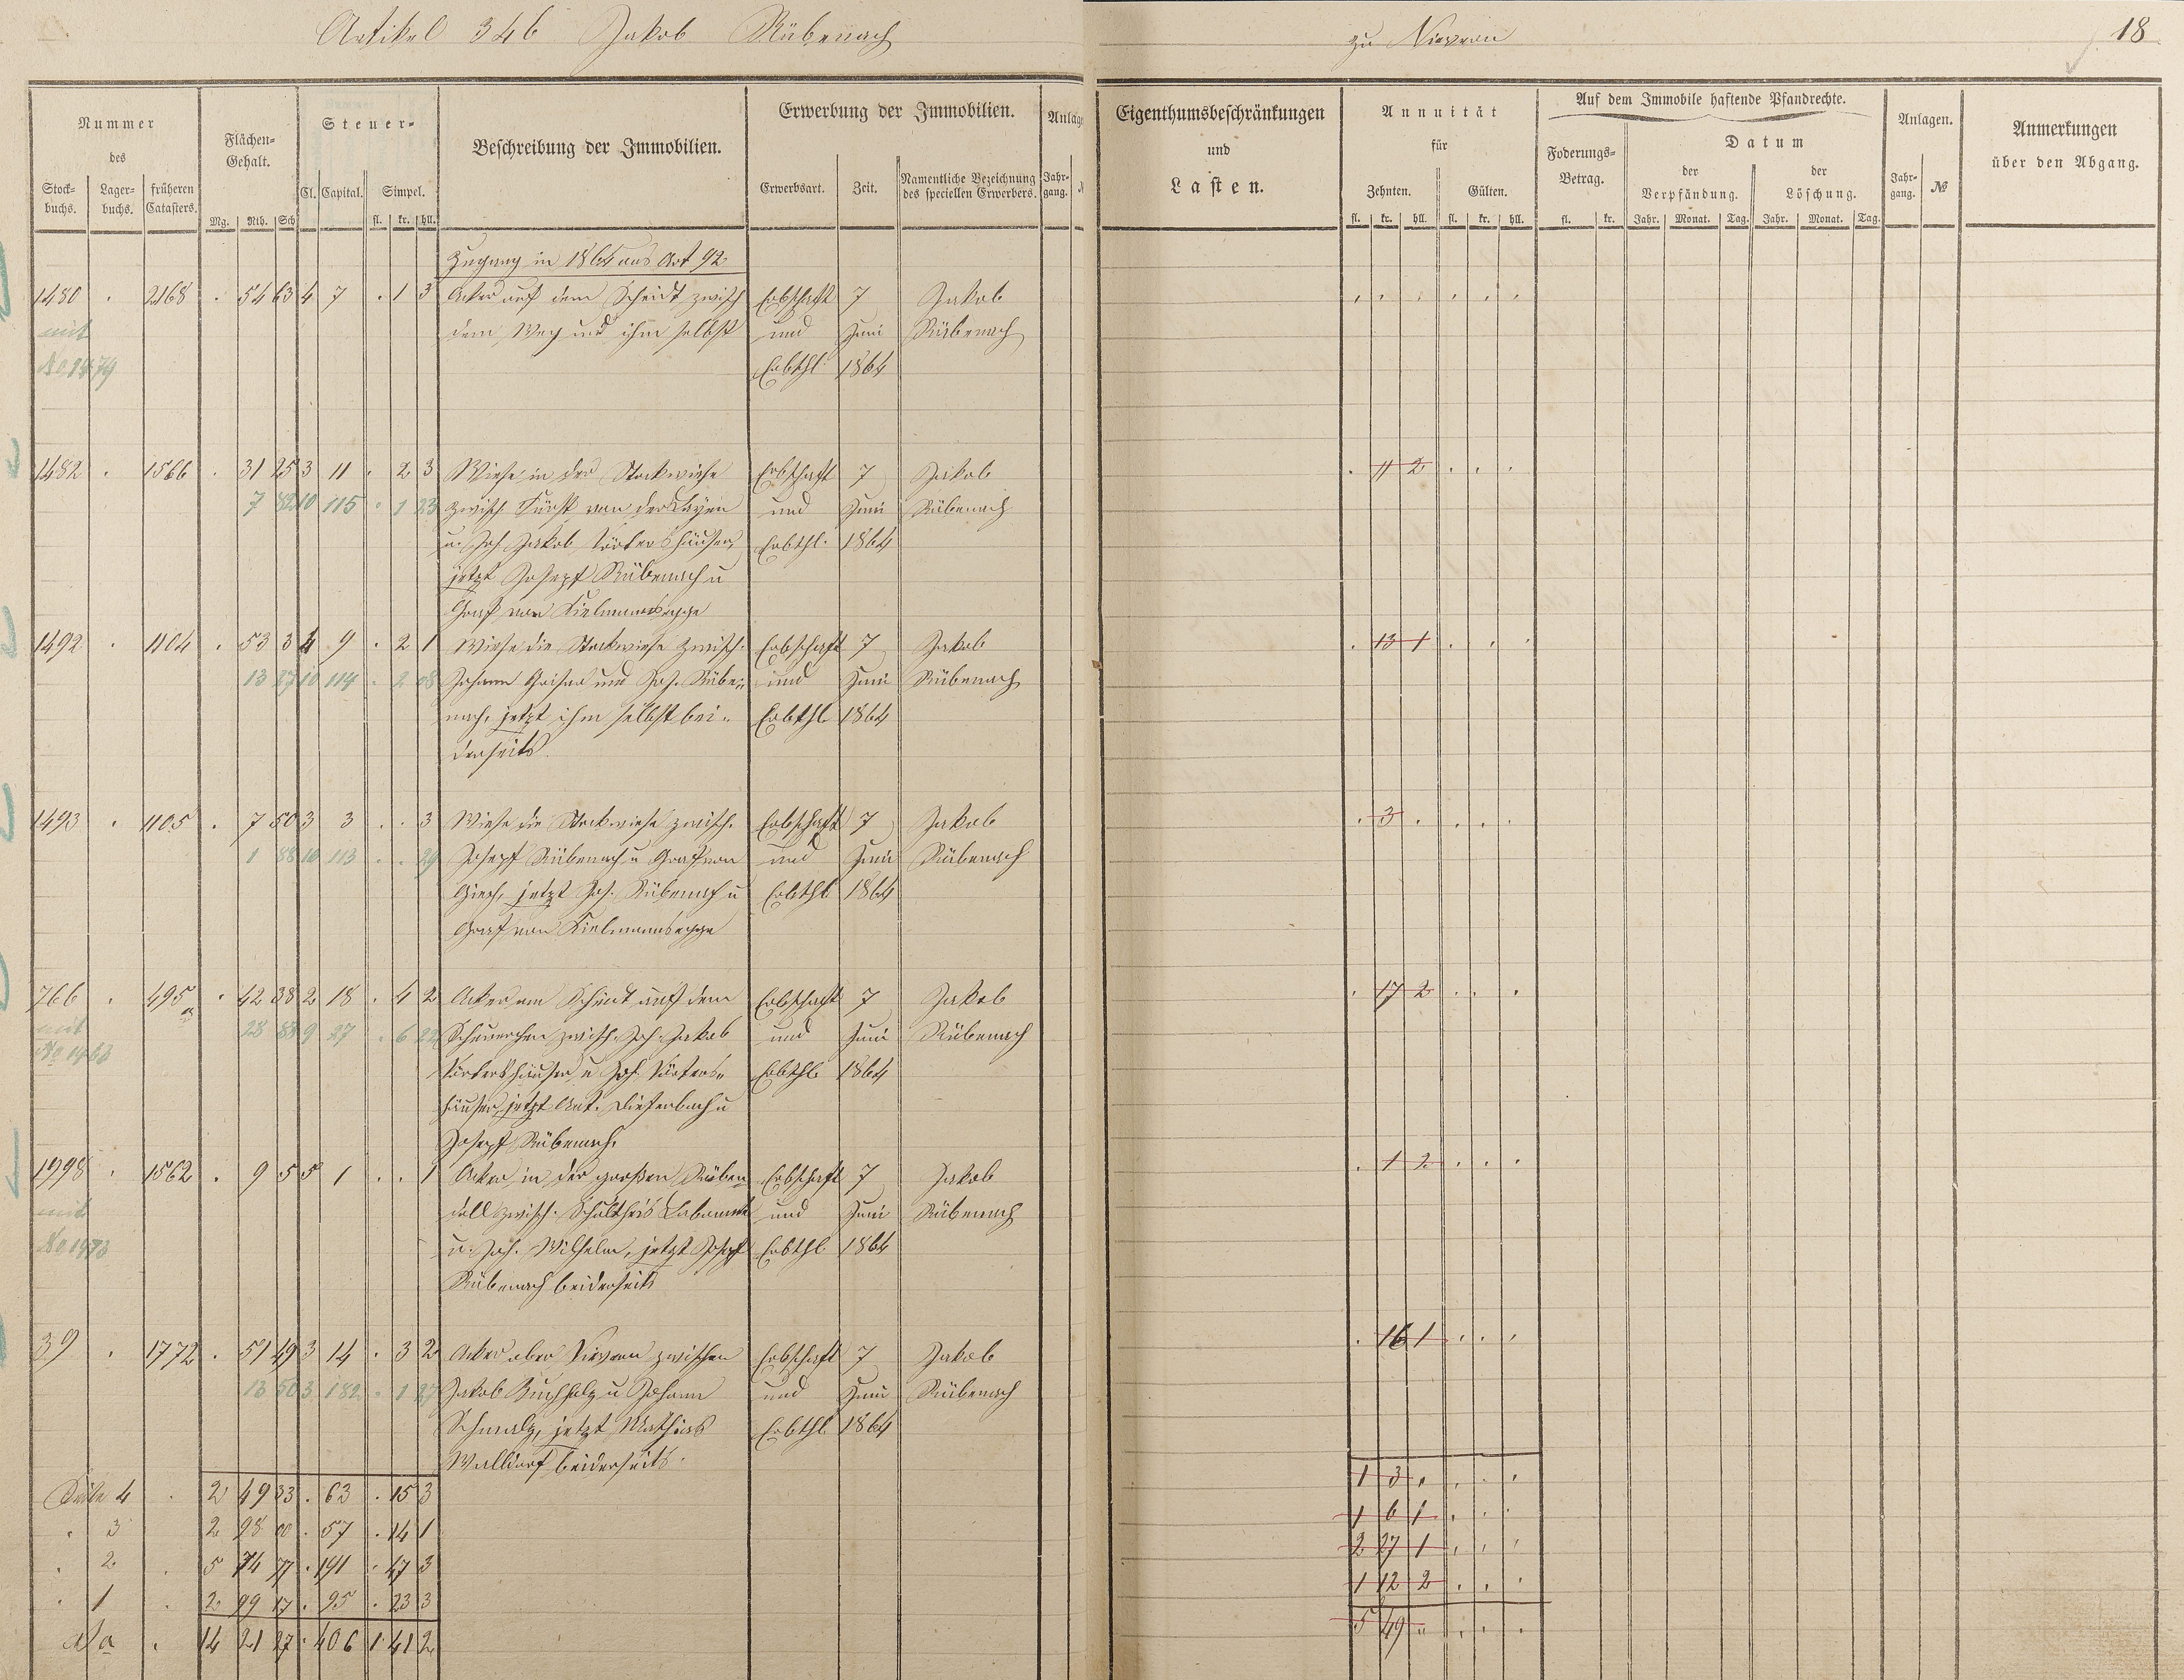 Artikel 346 Jakob Rübenach
zu Nievern
18
Nummer
des
Stock-buchs. Lager-buchs. früheren Catasters.
Flächen-Gehalt.
Mg. Rth. Sch
Steuer-
Cl. Capital. Simpel.
fl. kr. hll.
Beschreibung der Immobilien.
Erwerbung der Immobilien.
Erwerbsart. Zeit. Namentliche Bezeichnung des speciellen Erwerbers.
Jahr-gang.
Eigenthumsbeschränkungen
und
Lasten.
Annuität
für
Zehnten. Gülten.
fl. kr. hll. fl. kr. hll.
Auf dem Immobile haftende Pfandrechte.
Foderungs-Betrag.
fl. kr.
Datum
der Verpfändung. der Löschung.
Jahr. Monat. Tag. Jahr. Monat. Tag.
Anlagen.
Jahr-gang. №
Anmerkungen
über den Abgang.
Zugang in 1864 aus Art 92
1480 . 2168 . 54 63 4 7 . 1 3 Acker auf dem Scheidt zwisch Erbschaft 7 Jakob
mit dem Weg und ihm selbst und Juni Rübenach
No 1479 Erbthl. 1864
1482 . 1566 . 31 25 3 11 . 2 3 Wiese in der Stockwiese Erbschaft 7 Jakob . 11 2 . . .
7 82 10 115 . 1 23 zwisch Fürst von der Layen und Juni Rübenach
u. Joh. Jakob Törkershäuser, Erbthl. 1864
jetzt Joseph Rübenach u
Graf von Kielmannsegge
1492 . 1104 . 53 3 4 9 . 2 1 Wiese die Stockwiese zwisch. Erbschaft 7 Jakob . 13 1 . . .
13 27 10 114 . 2 08 Johann Geiser und Joh. Rübe- und Juni Rübenach
nach, jetzt ihm selbst bei- Erbthl 1864
derseits
1493 . 1105 . 7 50 3 3 . . 3 Wiese die Stockwiese zwisch. Erbschaft 7 Jakob . 3 . . . .
1 88 10 113 . . 29 Joseph Rübenach u Graf von und Juni Rübenach
Giech, jetzt Joh. Rübenach u Erbthl 1864
Graf von Kielmannsegge
766 . 495a . 42 38 2 18 . 4 2 Acker am Scheidt auf dem Erbschaft 7 Jakob . 17 2 . . .
mit 28 88 9 27 . 6 zwisch. Joh. Jakob und Juni Rübenach
Törkershäuser u Joh. Törkers- Erbthl 1864
häuser, jetzt Ant. Diefenbach u
Joseph Rübenach.
1998 . 1562 . 9 5 5 1 . . 1 Acker in der großen Rüben Erbschaft 7 Jakob . 1 2 . . .
mit dell zwisch. Schultheis und Juni Rübenach
No 1973 u. Joh. Wilhelm, jetzt Joseph Erbthl 1864
Rübenach beiderseits
39 . 1772 . 51 49 3 14 . 3 2 Acker ober Nievern zwischen Erbschaft 7 Jakob . 16 1 . . .
13 50 3 182 . 1 27 Jakob Buchholz u Johann und Juni Rübenach
Schmalz, jetzt Mathias Erbthl 1864
Walldorf beiderseits.
Seite 4 . 2 49 33 . 63 . 15 3 1 3 . . . .
. 3 2 98 00 . 57 . 14 1 1 6 1 . . .
. 2 . 5 74 77 . 191 . 47 3 2 27 1 . . .
. 1 . 2 99 17 . 95 . 23 3 1 12 2 . . .
Sa . 14 21 27 . 406 1 41 2 5 49 . . . .